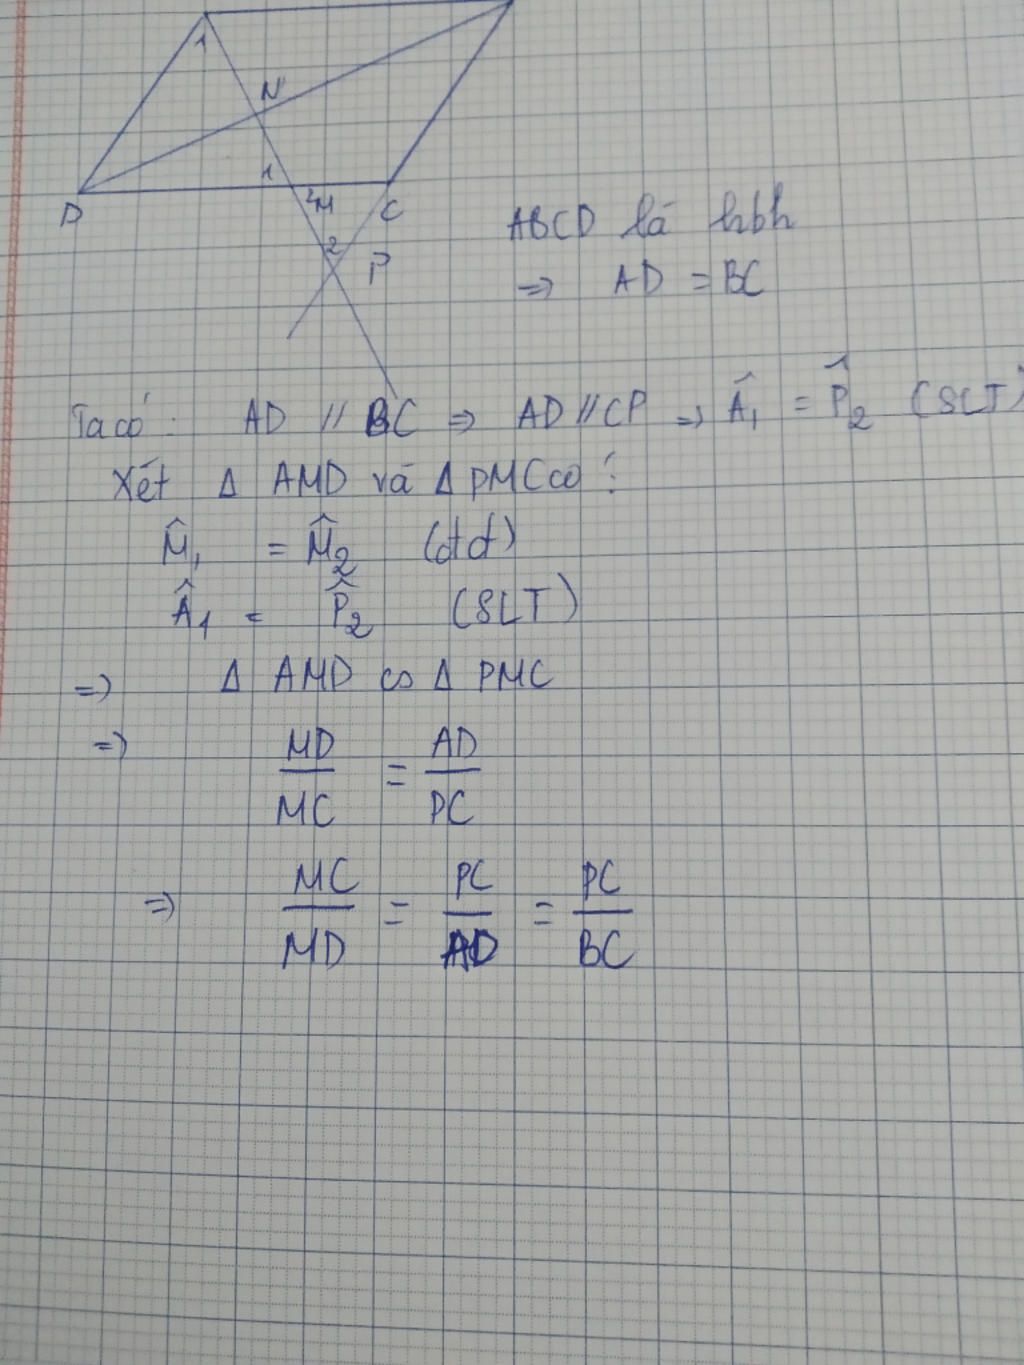 1
N
1
D
2 M
C
2
P
ABCD là hbh
=> AD = BC
Ta có: AD // BC => AD // CP => Â₁ = P̂₂ (SLT)
Xét Δ AMD và Δ PMC có:
M̂₁ = M̂₂ (đđ)
Â₁ = P̂₂ (SLT)
=> Δ AMD ∽ Δ PMC
=> MD/MC = AD/PC
=> MC/MD = PC/AD = PC/BC